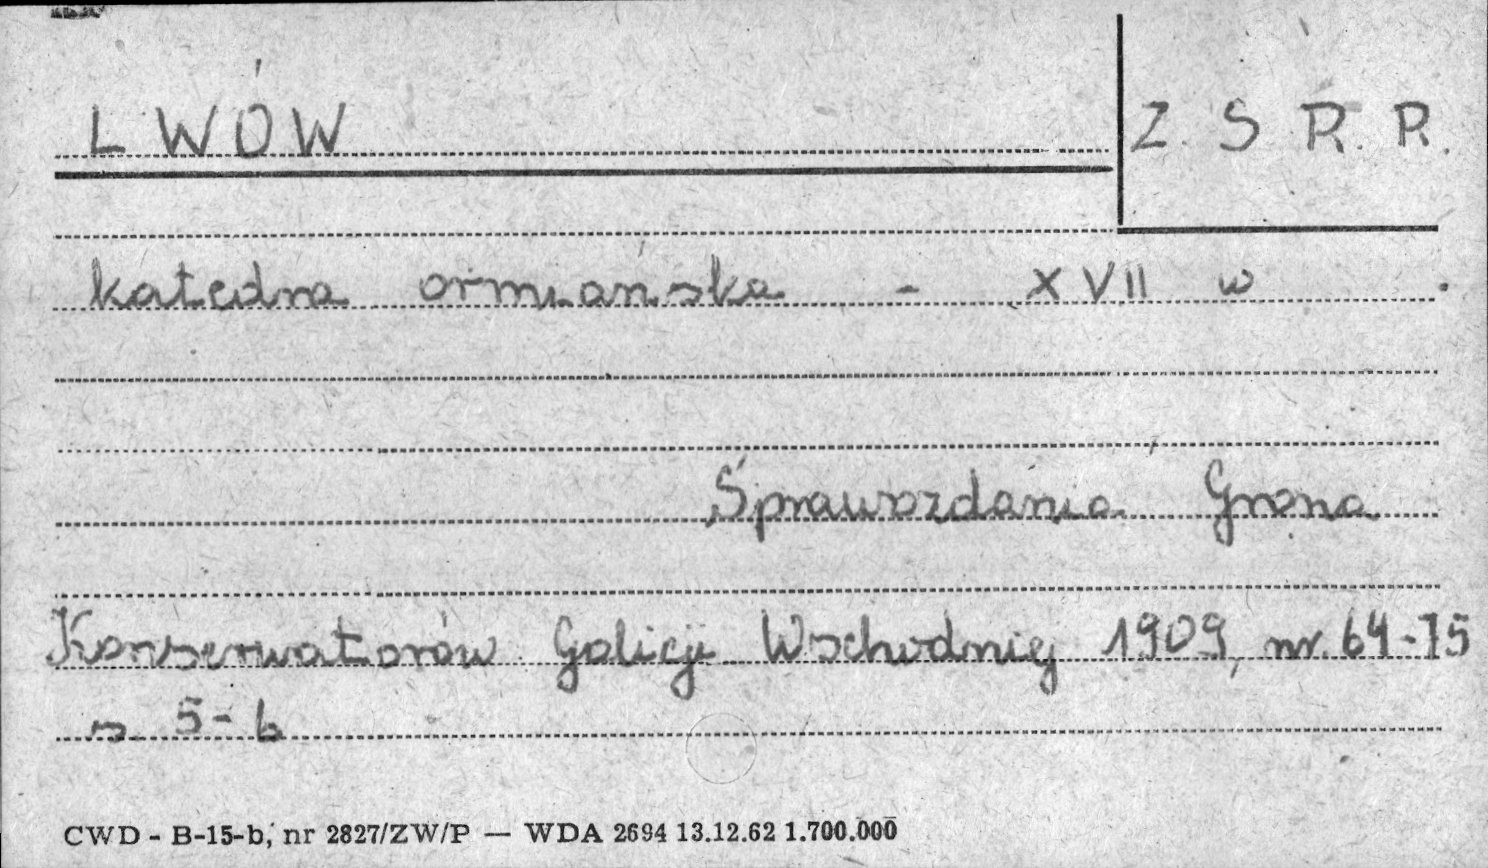 LWÓW
Z. S. R. R.
katedra ormiańska - XVII w.
Sprawozdania Grona
Konserwatorów Galicji Wschodniej 1909, nr. 64-75
s. 5-6
CWD - B-15-b, nr 2827/ZW/P — WDA 2694 13.12.62 1.700.000